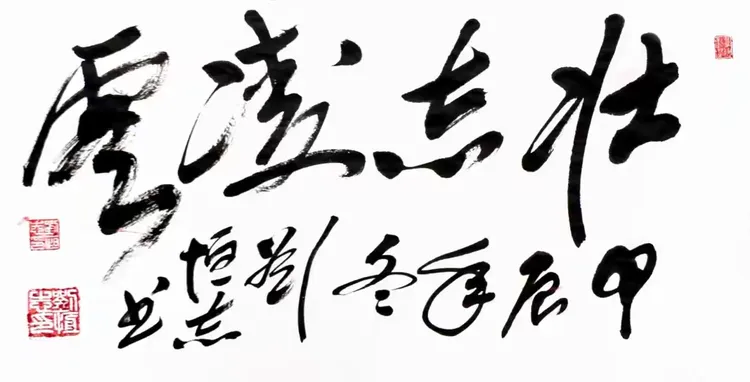 壮志凌雲
甲辰年冬刘恒志书